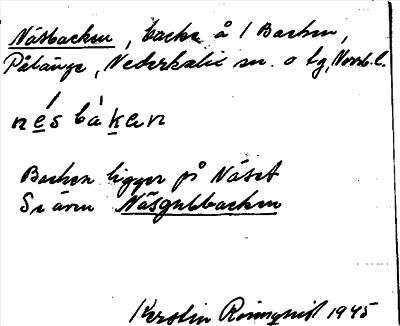 Näsbacken, backe å 1 Backen,
Pålänge, Nederkalix sn. o tg, Norrb.l.
nésbàkan
Backen ligger på Näset
Se även Näsgubbbacken
Kerstin Rönnqvist 1945